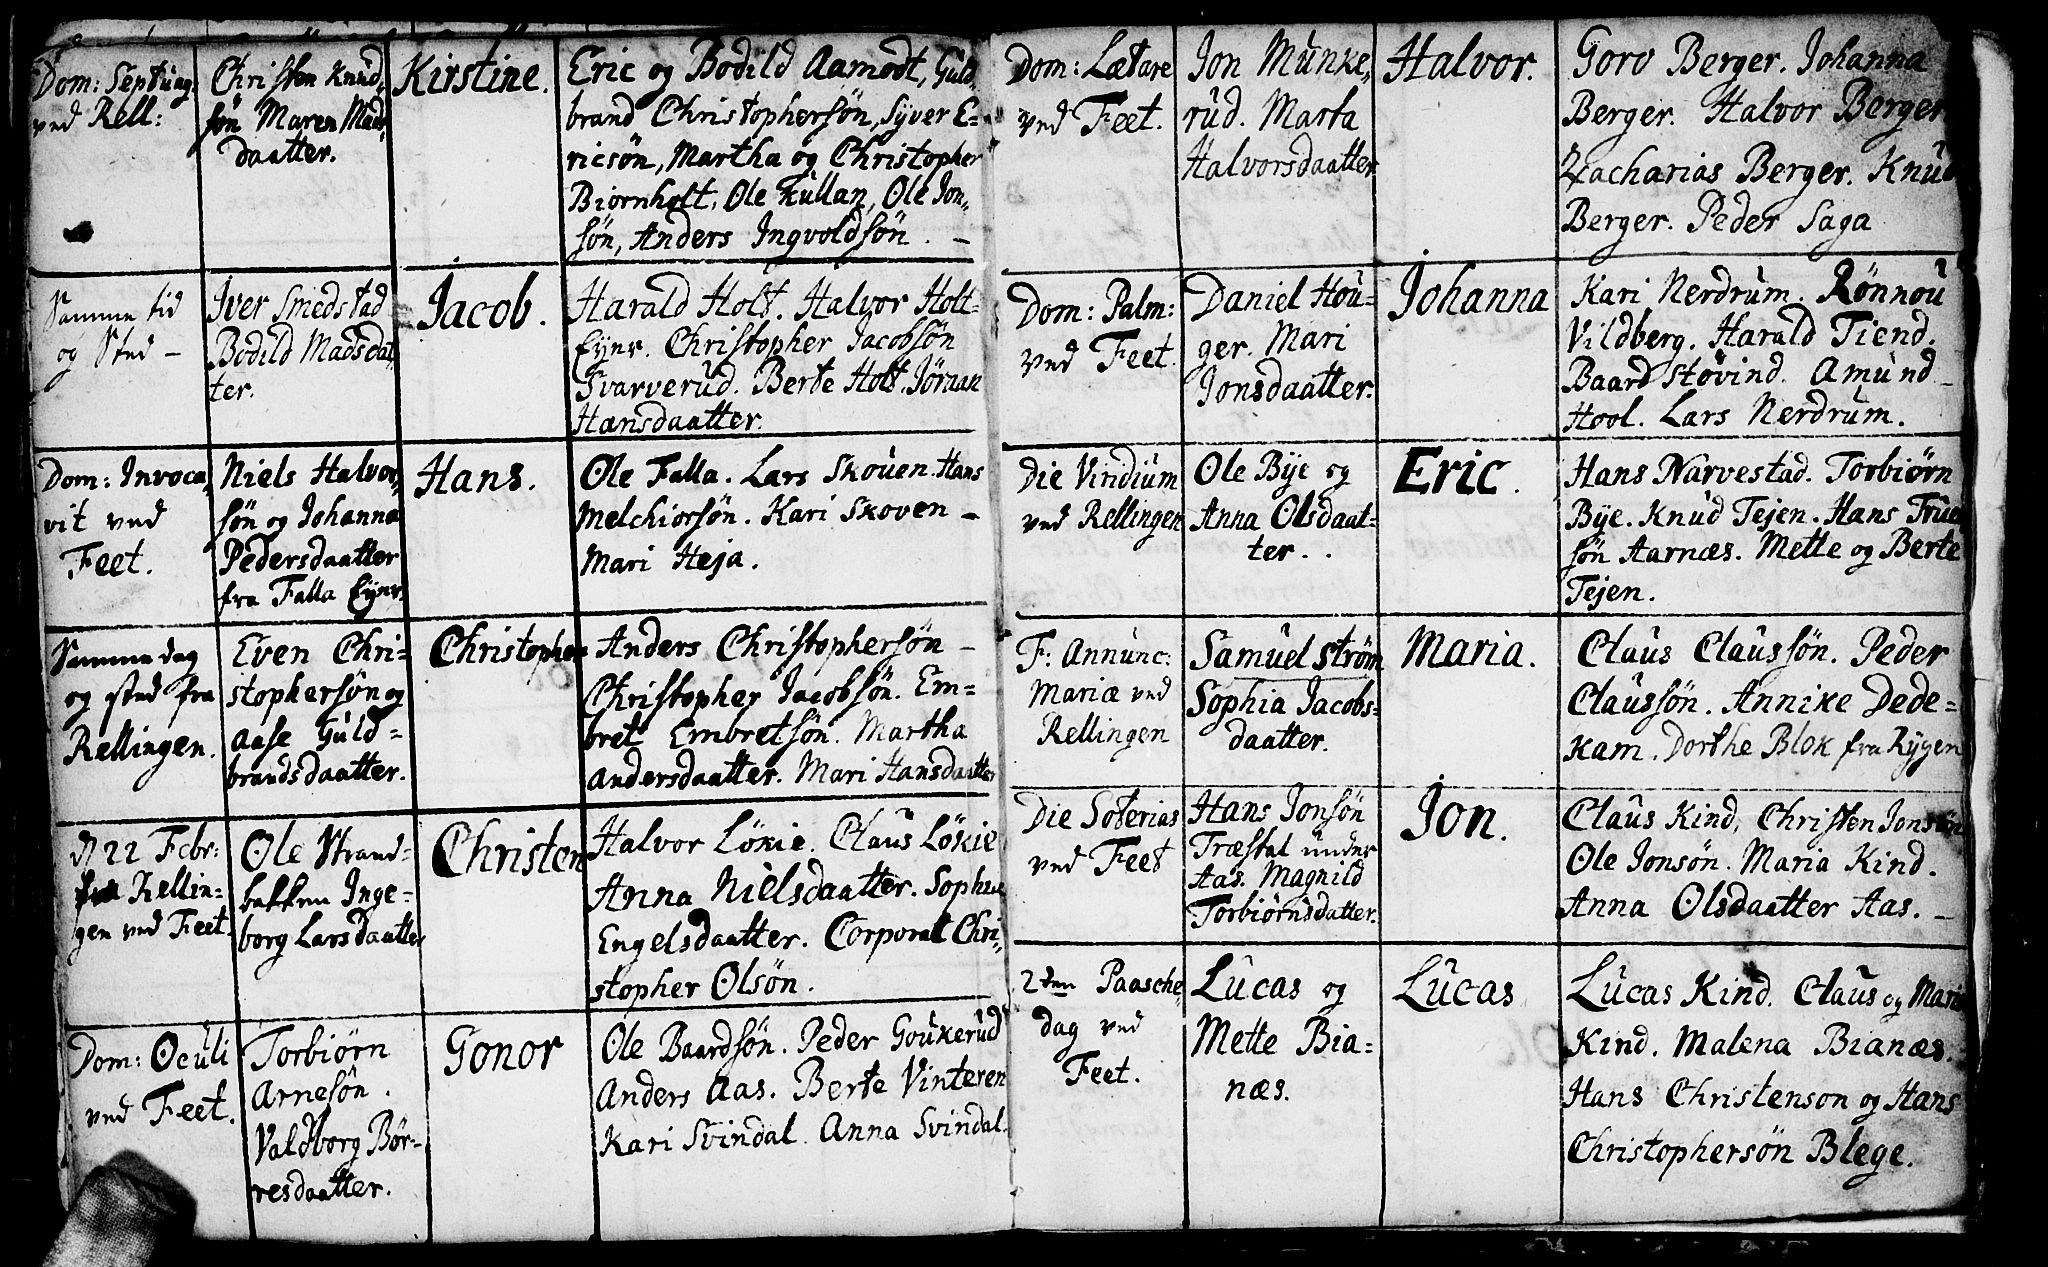 Dom: Septuag:
ved Rell:
Christen Knud-
søn Maren Mads
daatter.
Kirstine.
Eric og Bodild Aamodt, Guld-
brand Christophersøn, Syver E-
ricsøn, Martha og Christopher
Biørnholt, Ole Kullan, Ole Jon-
søn, Anders Ingvoldsøn. -
Samme tid
og Sted -
Iver Smedstad
Bodild Madsdat-
ter.
Jacob.
Harald Holt. Halvor Holt-
Eyer. Christopher Jacobsøn
Svarverud. Berte Holt. Jøran
Hansdaatter.
Dom: Invoca-
vit ved
Feet.
Niels Halvor-
søn og Johanna
Pedersdaatter
fra Falla Eyer.
Hans.
Ole Falla. Lars Skouen. Hans
Melchiorsøn. Kari Skoven -
Mari Heja.
Samme dag
og sted fra
Rellingen.
Even Chri-
stophersøn og
Aase Guld-
brandsdaatter.
Christopher
Anders Christophersøn -
Christopher Jacobsøn. Em-
bret Embretsøn. Martha
Andersdaatter. Mari Hansdaatter
d 22 Febr:
fra Rellin-
gen ved Feet.
Ole Strand-
bakken Inge-
borg Larsdaatter
Christen
Halvor Løkie. Claus Løkie
Anna Nielsdaatter. Sophie
Engelsdaatter. Corporal Chri-
stopher Olsøn.
Dom: Oculi
ved Feet.
Torbiørn
Arnesøn.
Valdborg Bør-
resdaatter.
Gonor
Ole Baardsøn. Peder Goukerud
Anders Aas. Berte Vinteren
Kari Svindal. Anna Svindal.
Dom: Lætare
ved Feet.
Jon Munke-
rud. Marta
Halvorsdaatter
Halvor.
Goro Berger. Johanna
Berger. Halvor Berger
Zacharias Berger. Knud
Berger. Peder Saga
Dom: Palm:
ved Feet.
Daniel Hou-
ger. Mari
Jonsdaatter.
Johanna
Kari Nerdrum. Rønnou
Vildberg. Harald Tiend.
Baard Støvind. Amund -
Hool. Lars Nerdrum.
Die Viridium
ved Rellingen
Ole Bye og
Anna Olsdaat-
ter. .
Eric.
Hans Narvestad. Torbiørn
Bye. Knud Tejen. Hans True
søn Aarnæs. Mette og Berte
Tejen.
F: Annunc:
Mariæ ved
Rellingen
Samuel Strøm
Sophia Jacobs-
daatter.
Maria.
Claus Claussøn. Peder
Claussøn. Annike Dede-
kam. Dorthe Blok fra Rygen
Die Soterias
ved Feet
Hans Jonsøn
Træstal under
Aas. Magnild
Torbiørnsdatter.
Jon.
Claus Kind, Christen Jonsøn
Ole Jonsøn. Maria Kind.
Anna Olsdaatter Aas. -
2den Paasche-
dag ved
Feet.
Lucas og
Mette Bia-
næs.
Lucas
Lucas Kind. Claus og Maria
Kind. Malena Bianæs.
Hans Christenson og Hans
Christophersøn Blege.